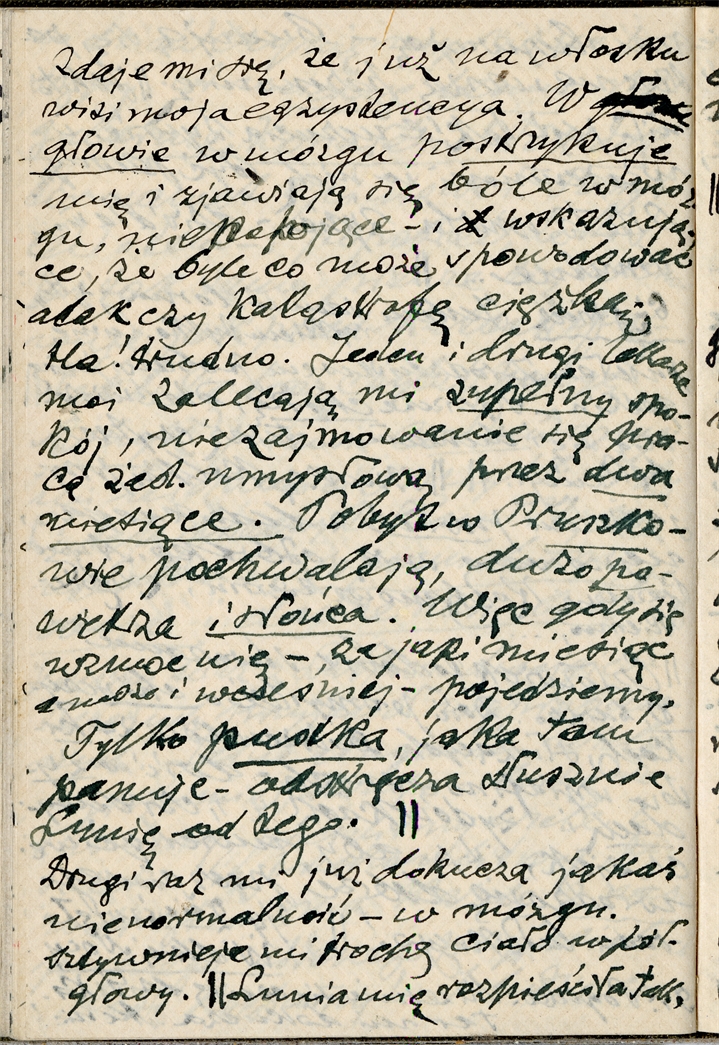 Zdaje mi się, że już na włosku
wisi moja egzystencya. W głow
głowie w mózgu postrzykuje
mię i zjawiają się bóle w móz-
gu, niepokojące - i wskazują-
ce, że byle co może spowodować
atak czy katastrofę ciężką,
Ha! trudno. Jeden i drugi lekarze
moi zalecają mi zupełny spo-
kój, niezajmowanie się pra-
cą żad. umysłową przez dwa
miesiące. Pobyt w Pruszko-
wie pochwalają, dużo po-
wietrza i słońca. Więc gdy się
wzmocnię -, za jaki miesiąc
a może i wcześniej - pojedziemy.
Tylko pustka, jaka tam
panuje - odstręcza słusznie
Lunię od tego. ||
Drugi raz mi już dokucza jakaś
nienormalność - w mózgu.
sztywnieje mi trochę ciało w pół-
głowy. || Lunia mię rozpieściła tak,